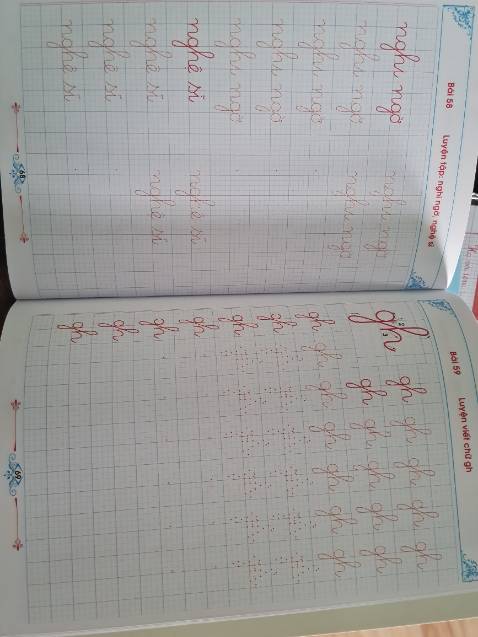 Bài 58
Luyện tập: nghi ngờ, nghệ sĩ
nghi ngờ nghi ngờ
nghi ngờ nghi ngờ
nghi ngờ
nghi ngờ
nghi ngờ
nghệ sĩ nghệ sĩ
nghệ sĩ nghệ sĩ
nghệ sĩ
nghệ sĩ
68
Bài 59
Luyện viết chữ gh
gh gh gh gh gh gh
gh gh gh gh gh
gh gh gh gh gh gh gh
gh
gh
gh
gh
gh
gh
69